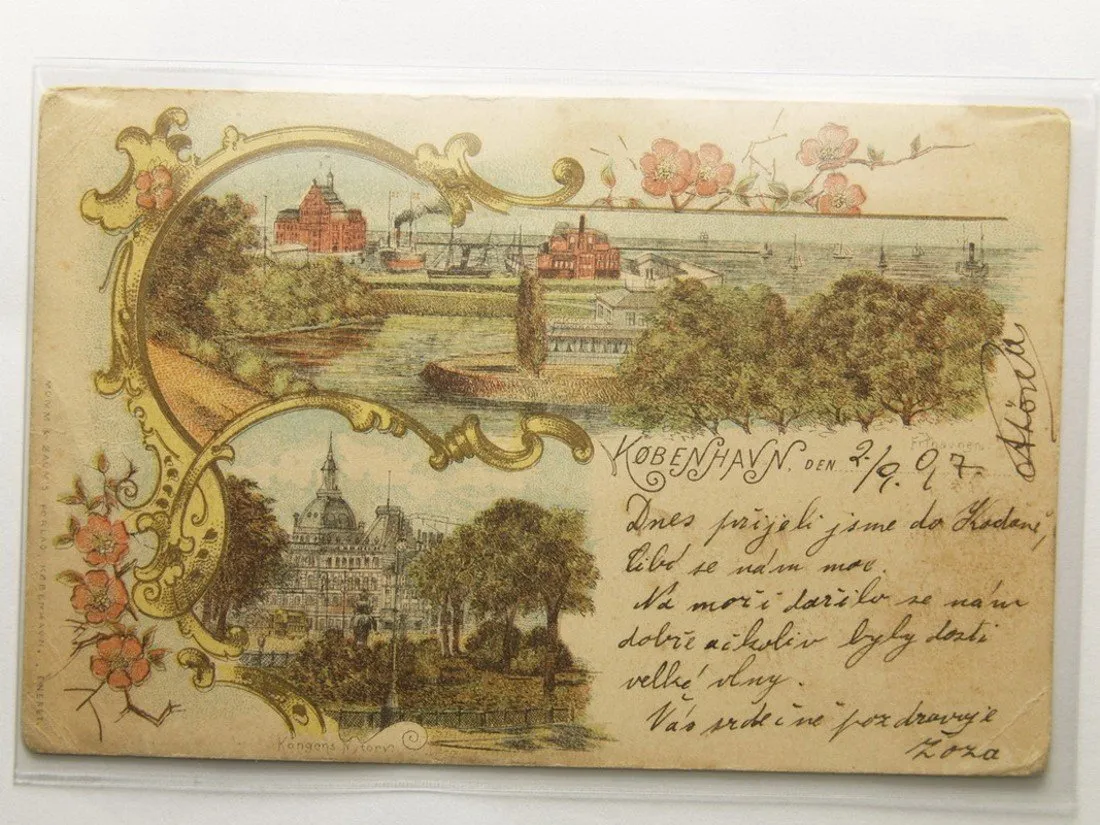 Frihavnen
KØBENHAVN, DEN 2/9 97.
Dnes přijeli jsme do Kodaně,
líbí se nám moc.
Na moři dařilo se nám
dobře ačkoliv byly dosti
velké vlny.
Vás srdečně pozdravuje
Kongens Nytorv